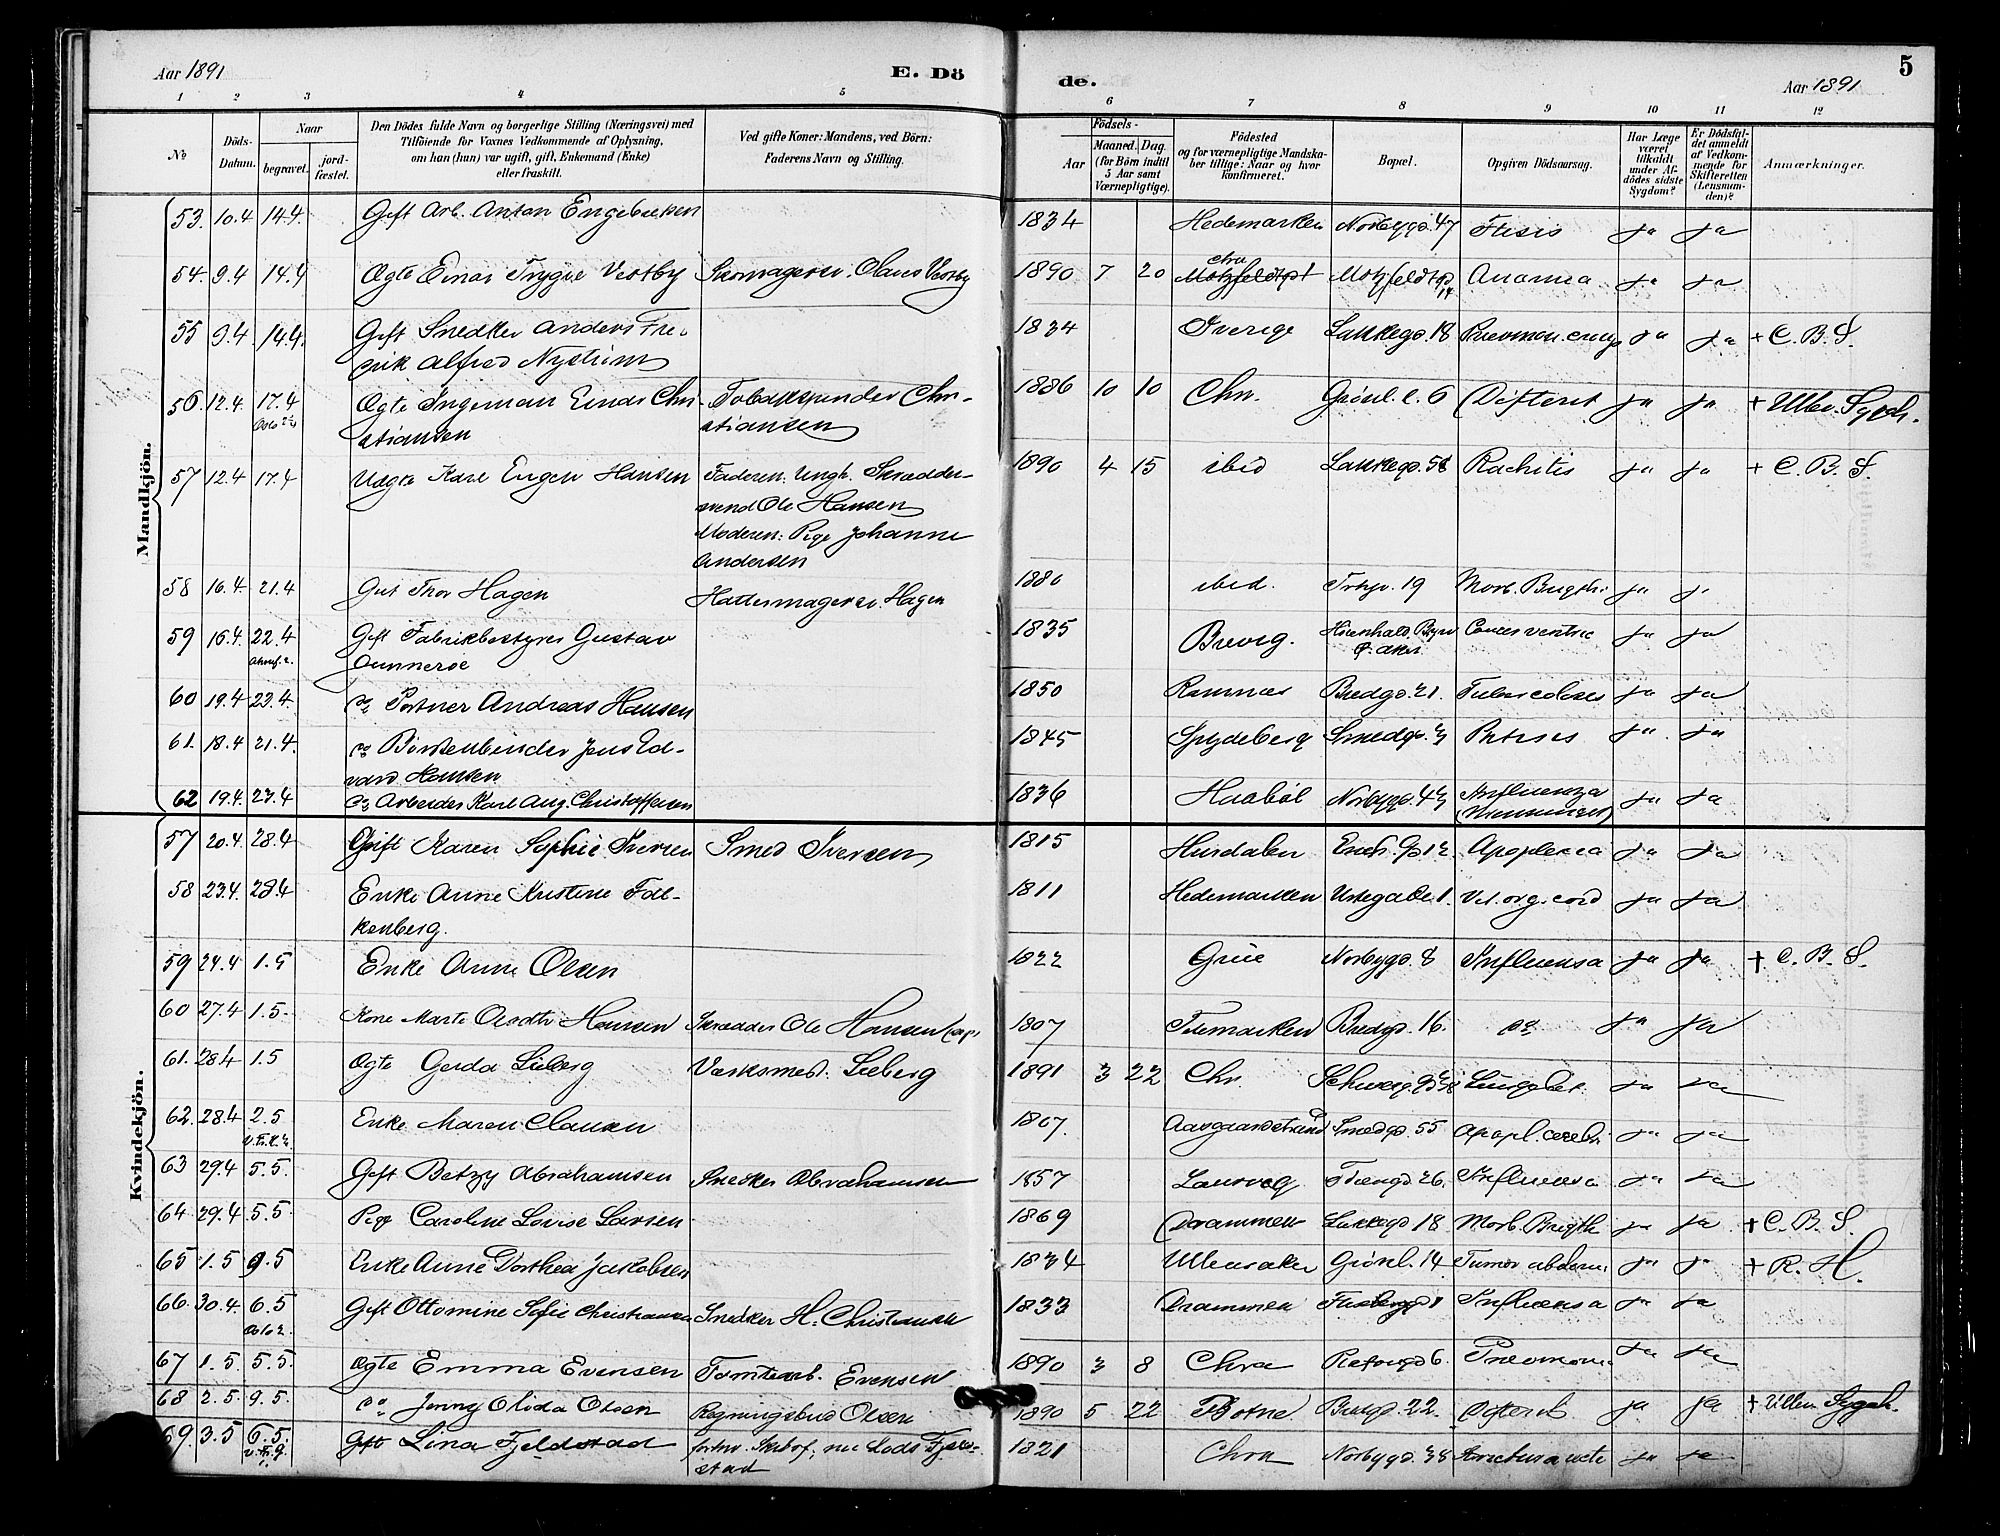 Aar 1891 E. Dö de. Aar 1891 5
1 2 3 4 5 6 7 8 9 10 11 12
№ Döds-Datum. Naar begravet. jord-fæstet. Den Dödes fulde Navn og borgerlige Stilling (Næringsvei) med Tilföiende for Voxnes Vedkommende af Oplysning, om han (hun) var ugift, gift, Enkemand (Enke) eller fraskilt. Ved gifte Koner: Mandens, ved Börn: Faderens Navn og Stilling. Födsels- Aar Maaned. Dag. (for Börn indtil 5 Aar samt Værnepligtige). Födested og for værnepligtige Mandska-ber tillige: Naar og hvor konfirmeret. Bopæl. Opgiven Dödsaarsag. Har Læge været tilkaldt under Af-dödes sidste Sygdom? Er Dödsfal-det anmeldt af Vedkom-mende for Skifteretten (Lensman-den)? Anmærkninger.
Mandkjön.
53. 10.4 14.4. Gift Arb. Anton Engebretsen 1834 Hedemarken Norbygd. 47 Ftisis ja ja
54. 9.4 14.4 Ægte Einar Trygve Vestby Skomagersv. Olaus Vestby 1890 7 20 Chra Motzfeldtgd 14 Anæmia ja ja
55 9.4 14.4. Gift Snedker Anders Fre-
drik Alfred Nyström 1834 Sverige Lakkegd. 18 Pneumon. crup ja ja + C. B. S.
56. 12.4. 17.4 Oslo Ægte Ingeman Einar Chri-
stiansen Tobakspinder Chri-
stiansen 1886 10 10 Chra. Grönl. l. 6 Difterit ja ja + Ullev. Sygeh.
57 12.4 17.4 Uægte Kare Eugen Hansen Faderen: Ungk. Skrædder-
svend Ole Hansen
Moderen: Pige Johanne
Andersen 1890 4 15 ibid Lakkegd. 58 Rachitis ja ja + C. B. S.
58 16.4. 21.4 Gut Thor Hagen Hattemagersv. Hagen 1880 ibid. 19 Morb. Brigthi ja ja
59 16.4. 22.4 Gift Fabrikbestyrer Gustav
Gunneröe 1835 Brevig. Cancer ventric ja ja
60 19.4 23.4. do Portner Andreas Hansen 1850 Ramnæs Bredgd. 21. Tuberculoses ja ja
61. 18.4 21.4. do Börstenbinder Jens Ed-
vard Hansen 1845 Spydeberg Smedgd. Phtisis ja ja
62 19.4. 23.4 do Arbeider Karl Aug. Christoffersen 1836 Haaböl Norbygd. 43 Influenza ja ja
Kvindekjön.
57 20.4 28.4 Gift Karen Sophie Iversen Smed Iversen 1815 Hurdalen Apoplexia ja ja
58 23.4. 28.4 Enke Anne Kristine Fal-
kenberg. 1811 Hedemarken Urtegaden 1. Vit. org. cord ja ja
59 24.4 1.5 Enke Anne Olsen 1822 Grue Norbygd. 8 Influensa ja ja + C. B. S.
60 27.4 1.5. Kone Marte Hansen Skrædder Ole Hansen 1807 Telemarken Bredgd. 16. do ja ja
61. 28.4 1.5 Ægte Gerda Lieberg Værksmest. Lieberg 1891 3 22 Chr. Schweigd. Lungebet. ja ja
62. 28.4 2.5 Enke Maren Clausen 1807. Aasgaardstrand Smedgd. 55 Apopl. cerebri ja ja
63 29.4 5.5. Gift Betzy Abrahamsen Snedker Abrahamsen 1857 Laurvig Töiengd 26. Influensa ja ja
64. 29.4 5.5. Pige Caroline Lovise Larsen 1869 Drammen Lakkegd 18 Morb. Brigth ja ja + C. B. S.
65 1.5 9.5 Enke Anne Dorthea Jakobsen 1834 Ullensaker Grönl. 14 Tumor abdom. ja ja + R. H.
66. 30.4. 6.5 Oslo Gift Ottomine Sofie Christiansen Snedker H. Christiansen 1833 Drammen Influensa ja ja
67 1.5. 5.5. Ægte Emma Evensen Tomtearb. Evensen 1890 3 8 Chra 6. Pneumoni ja ja
68 2.5. 9.5. do Jenny Olida Olsen Regningsbud Olsen 1890 5 22 Botne Bredgd. 22. Difterit ja ja + Ullev. Sygeh.
69. 3.5 6.5. Gift Lina Fjeldstad 1821 Chra Norbygd. 38 ja ja